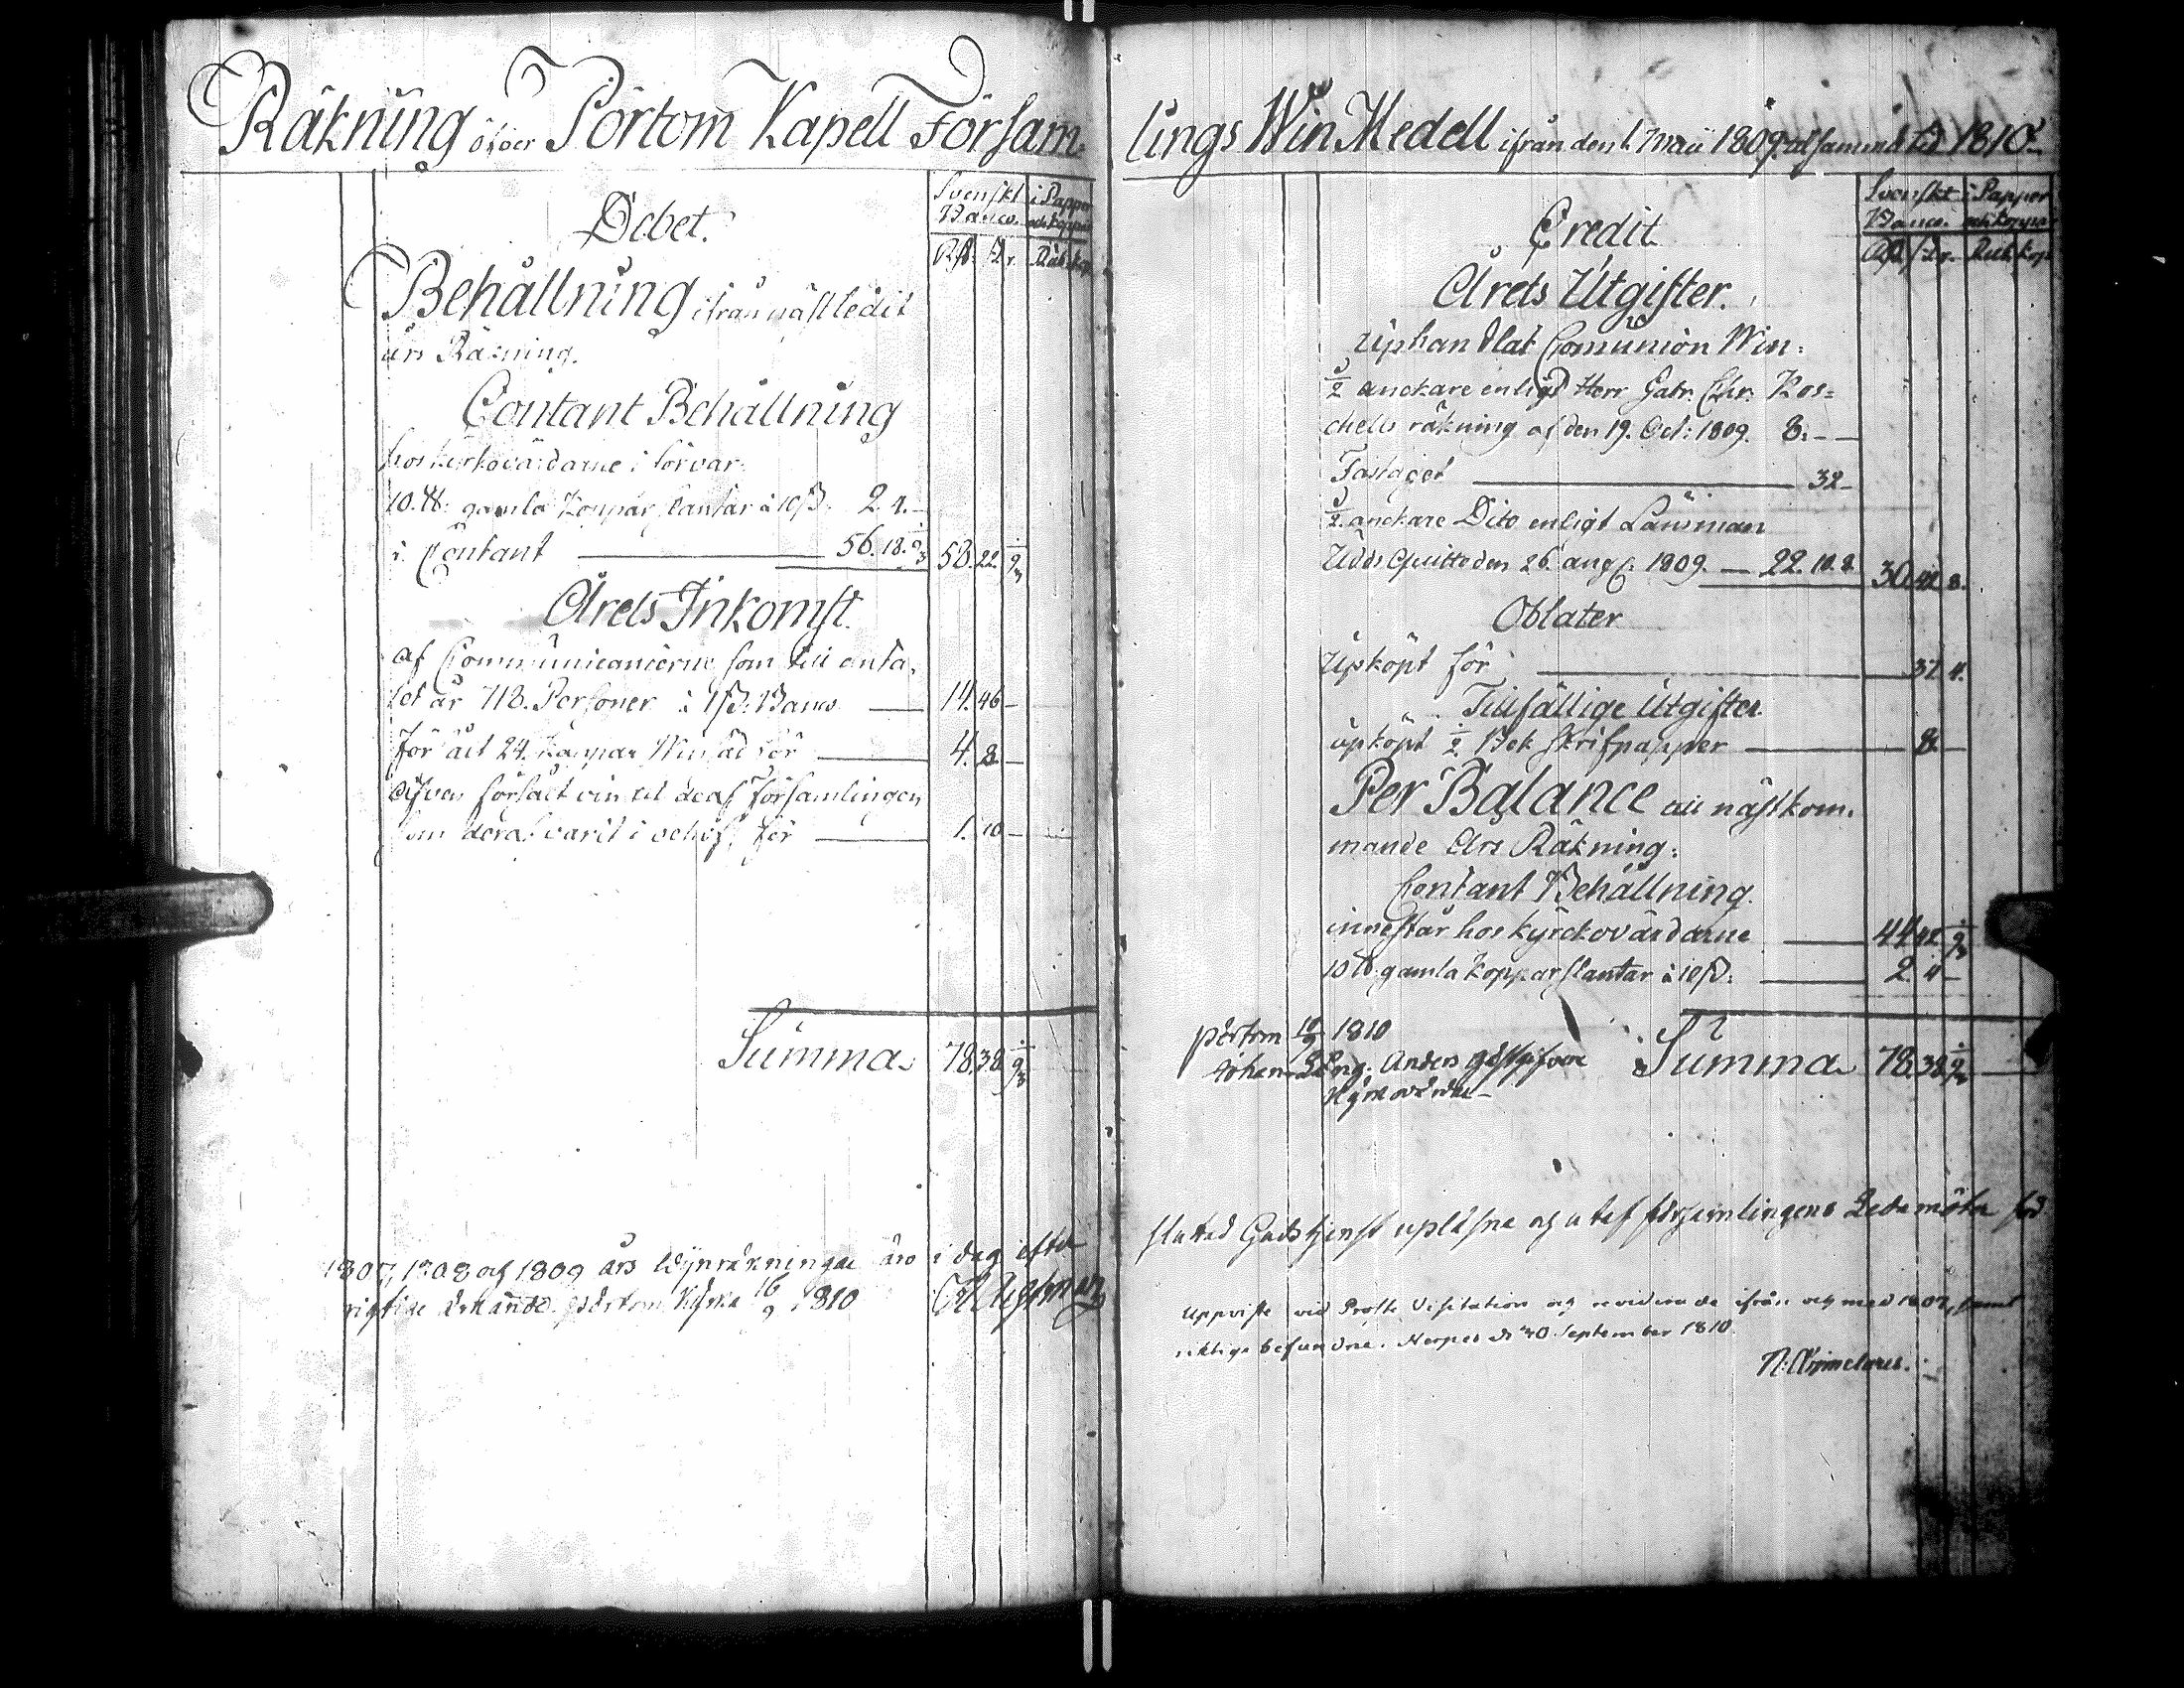 Räkning öfver Pörtom Kapell Församlings Win Medell ifrån den 1. Maii 1809. til samma tid 1810.
Debet.
Svenskt i Papper
Banco. och koppar
Behållning ifrån nästledit
års Räkning.
Contant Behållning
hos kyrkovärdarne i förvar.
10. ℔: gamla Koppar slantar à 10 ß. 2. 4. –
i Contant 56. 18. 58. 22.
Årets Inkomst.
af Communicanterne som till anta-
let är 718. Personer à 1 ß. Banco 14. 46 –
för ält 24. kappar Winsäd för 4. 8. –
Äfven försält vin til de af församlingen
som deraf varit i behof, för 1. 10 –
Summa. 78. 38.
1807, 1808 och 1809 års Wijnräkningar äro i dag efter
riktige erkände. Pörtom Kyrka 16/9 1810
Svenskt i Papper
Banco. och koppar
Credit
Årets Utgifter.
Uphandlat Comunion Win:
1/2 anckare enligt Herr Gabr. Chr. Ros=
chells räkning af den 19. Oct: 1809. 8. – –
Fastaget 32 –
1/2 anckare Dito enligt Länsman
Udds Quitto den 26. aug. 1809. – 22. 10. 8. 30. 42. 8.
Oblater
Upköpt för 37 4.
Tillfällige Utgifter.
upköpt 1/2 Bok skrifpapper 8. –
Per Balance till nästkom-
mande Års Räkning:
Contant Behållning.
innestår hos kyrckovärdarne 44. 42
10 ℔ gamla Kopparslantar à 10 ß. 2. 4 –
Pörtom 1810
Summa 78. 38.
Johan Anders
Kyrkovärdar –
slutad Gudstjenst uplästne och utaf församlingens Ledamöter för
Uppviste vid Prosts Visitation och reviderade ifrån och med 1807, samt
riktige befundne. Nerpes d. 30 September 1810.
N: Aejmelaeus.